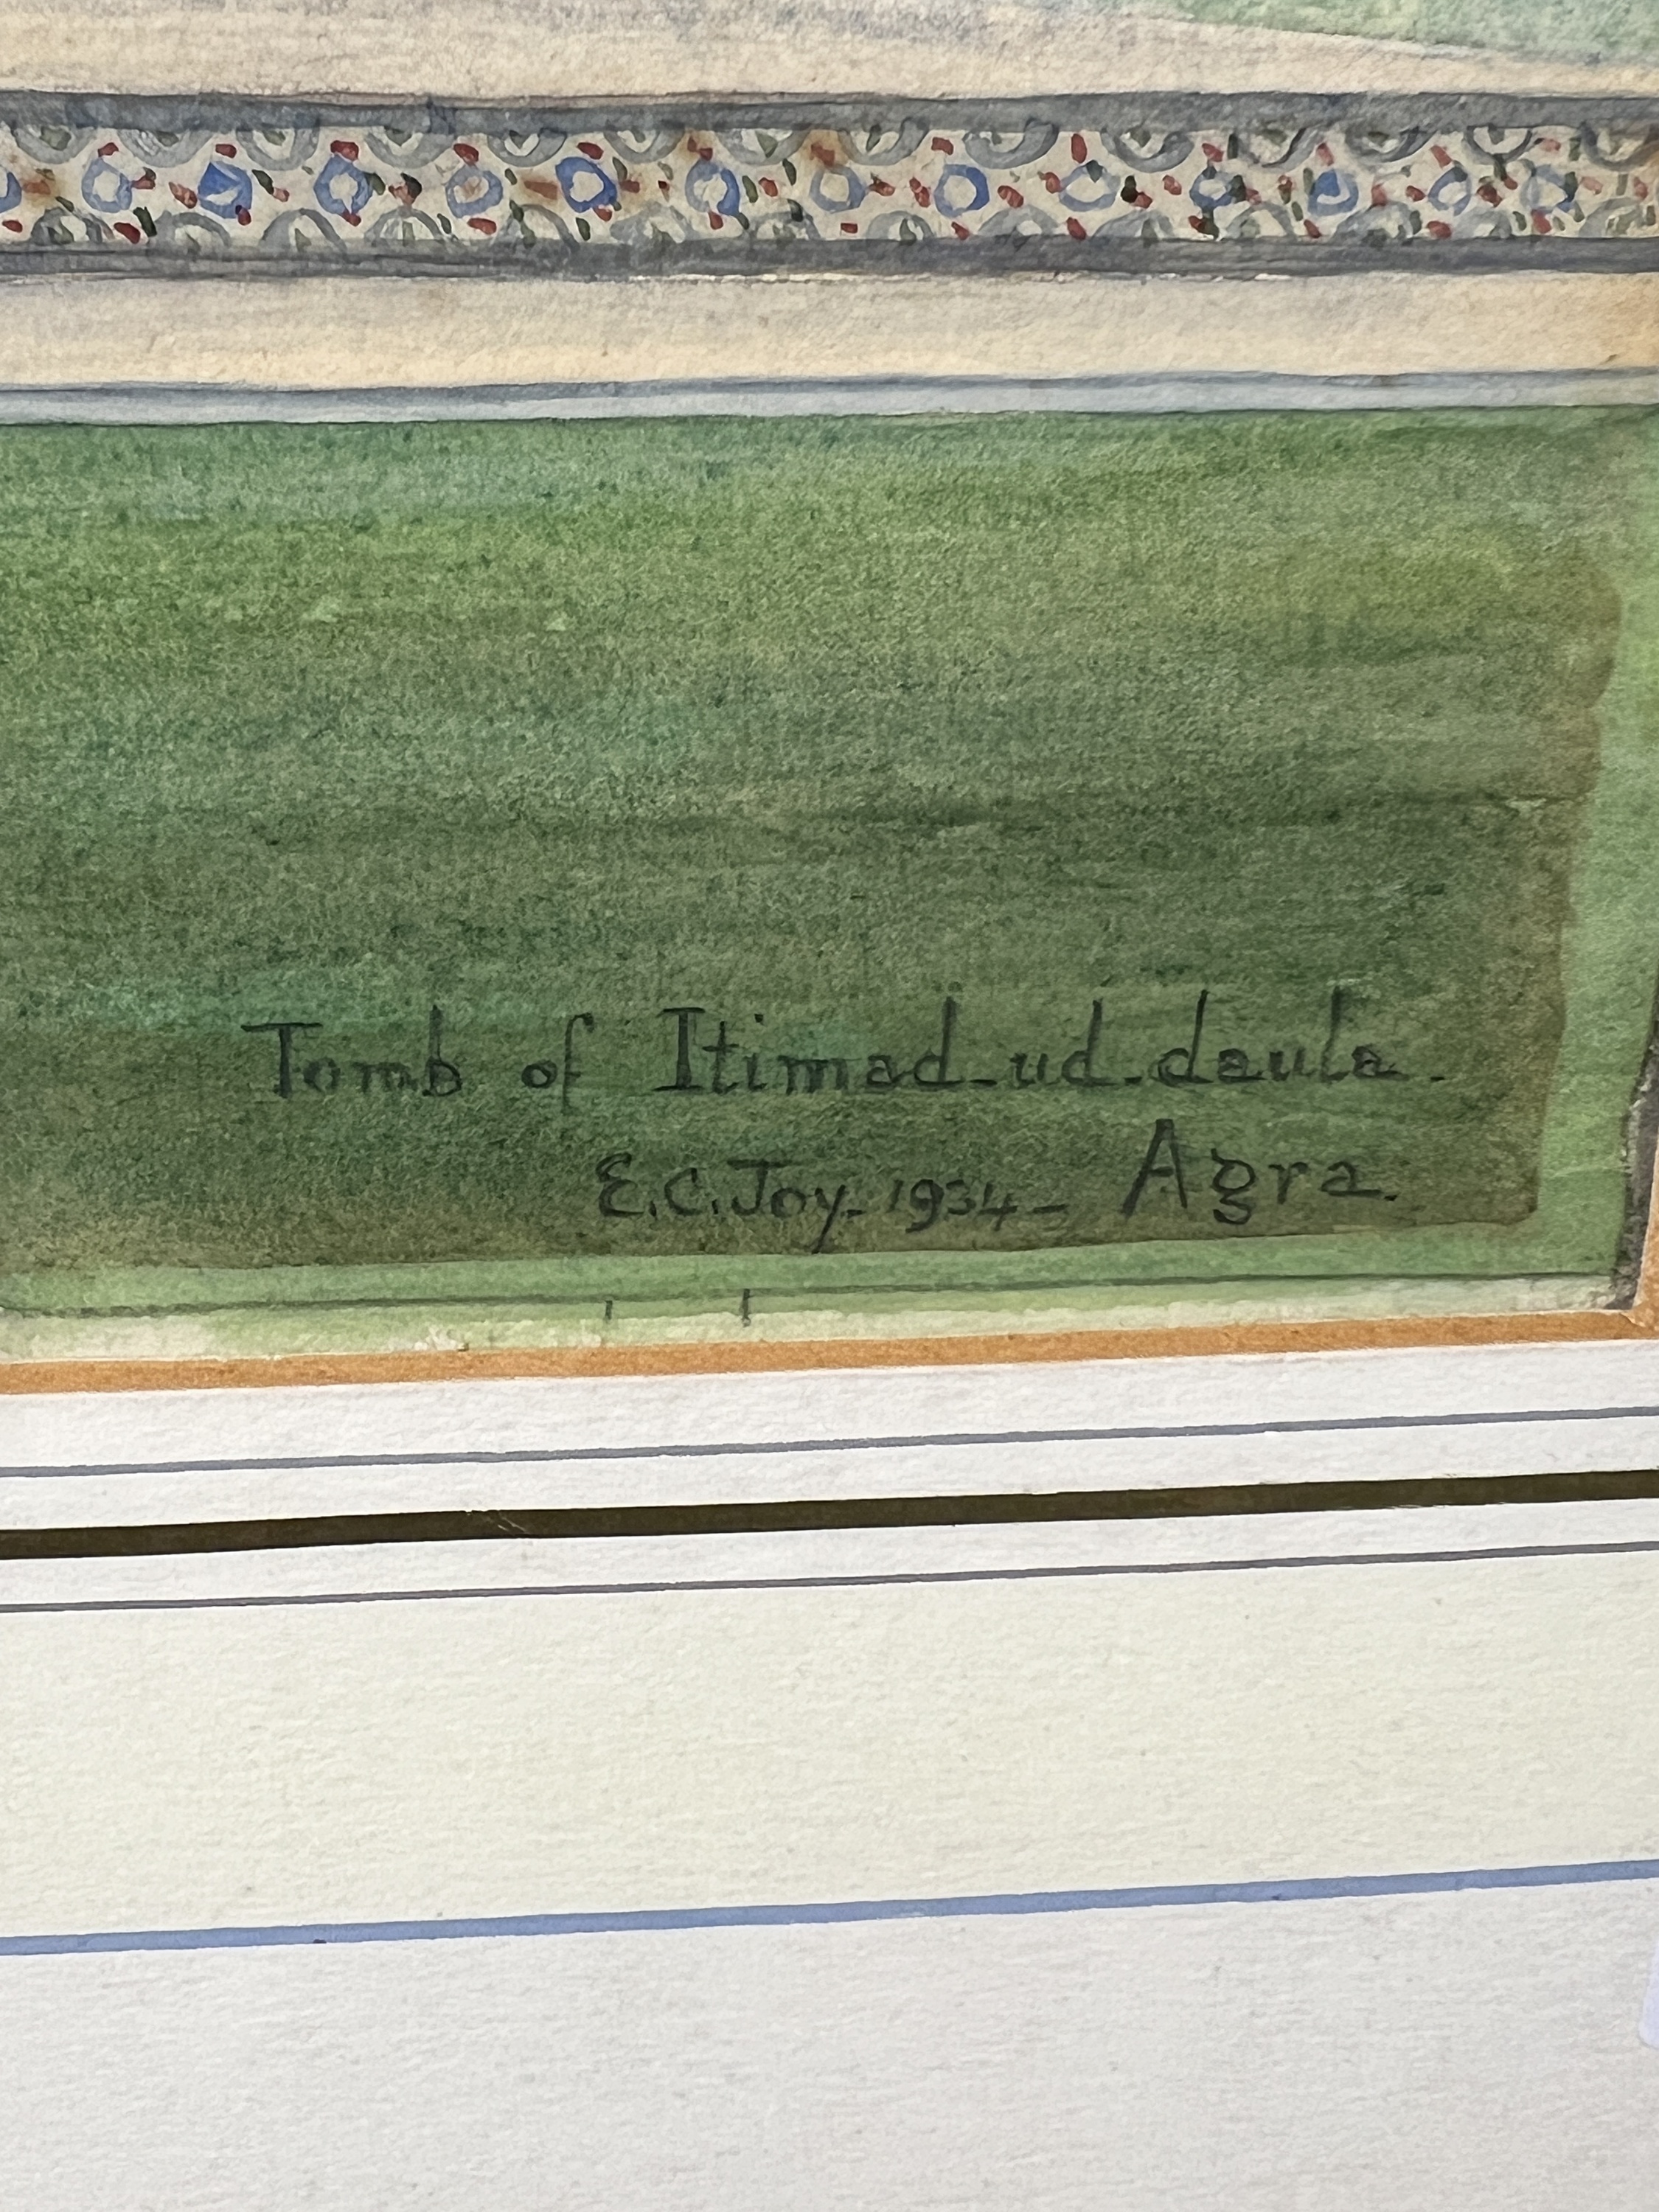 Tomb of Itimad-ud-daula.
E.C. Joy-1934- Agra.